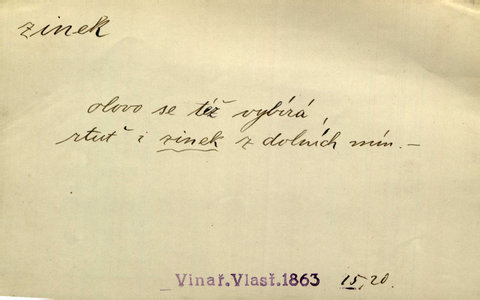 zinek
olovo se též vybírá,
rtuť i zinek z dolních mín. —
Vinař.Vlasť.1863 15,20.